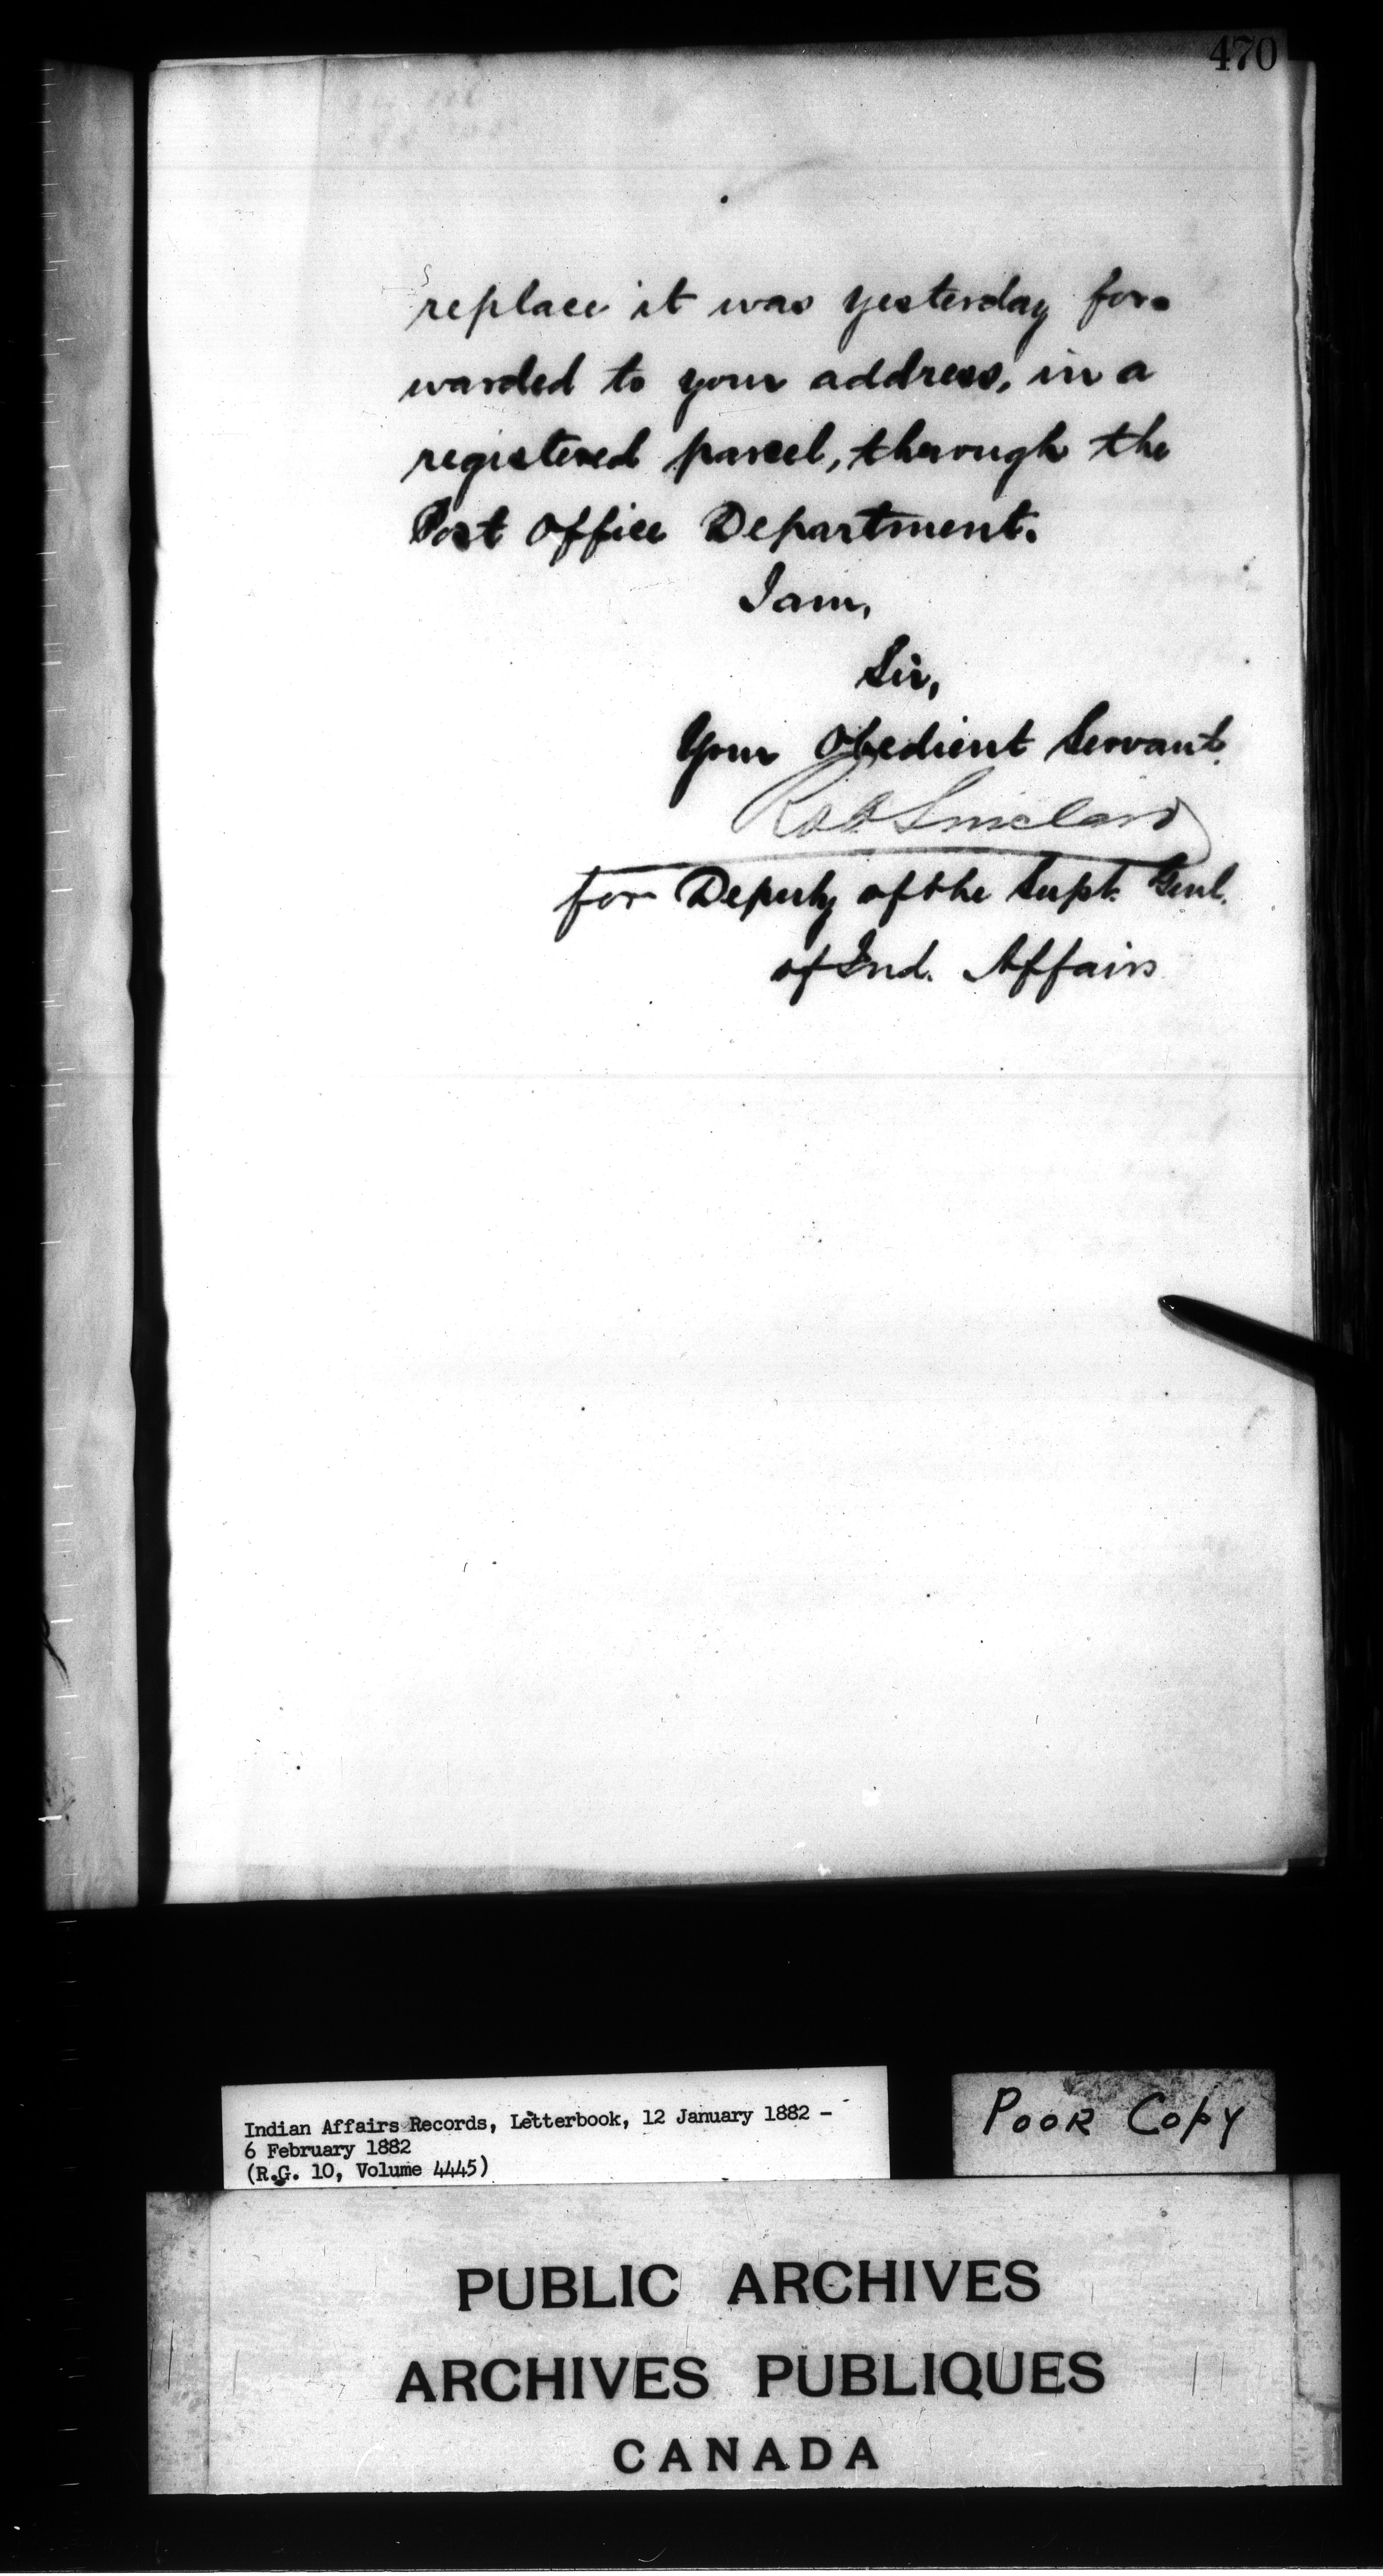 470
replace it was yesterday for-
warded to your address, in a
registered parcel, through the
Post Office Department.
I am,
Sir,
Your Obedient Servant.
Robt Sinclair
for Deputy of the Supt. Genl.
of Ind. Affairs
Indian Affairs Records, Letterbook, 12 January 1882 -
6 February 1882
(R.G. 10, Volume 4445)
POOR COPY
PUBLIC ARCHIVES
ARCHIVES PUBLIQUES
CANADA